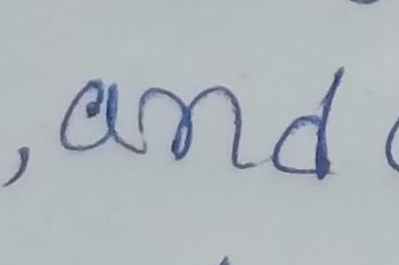 , and